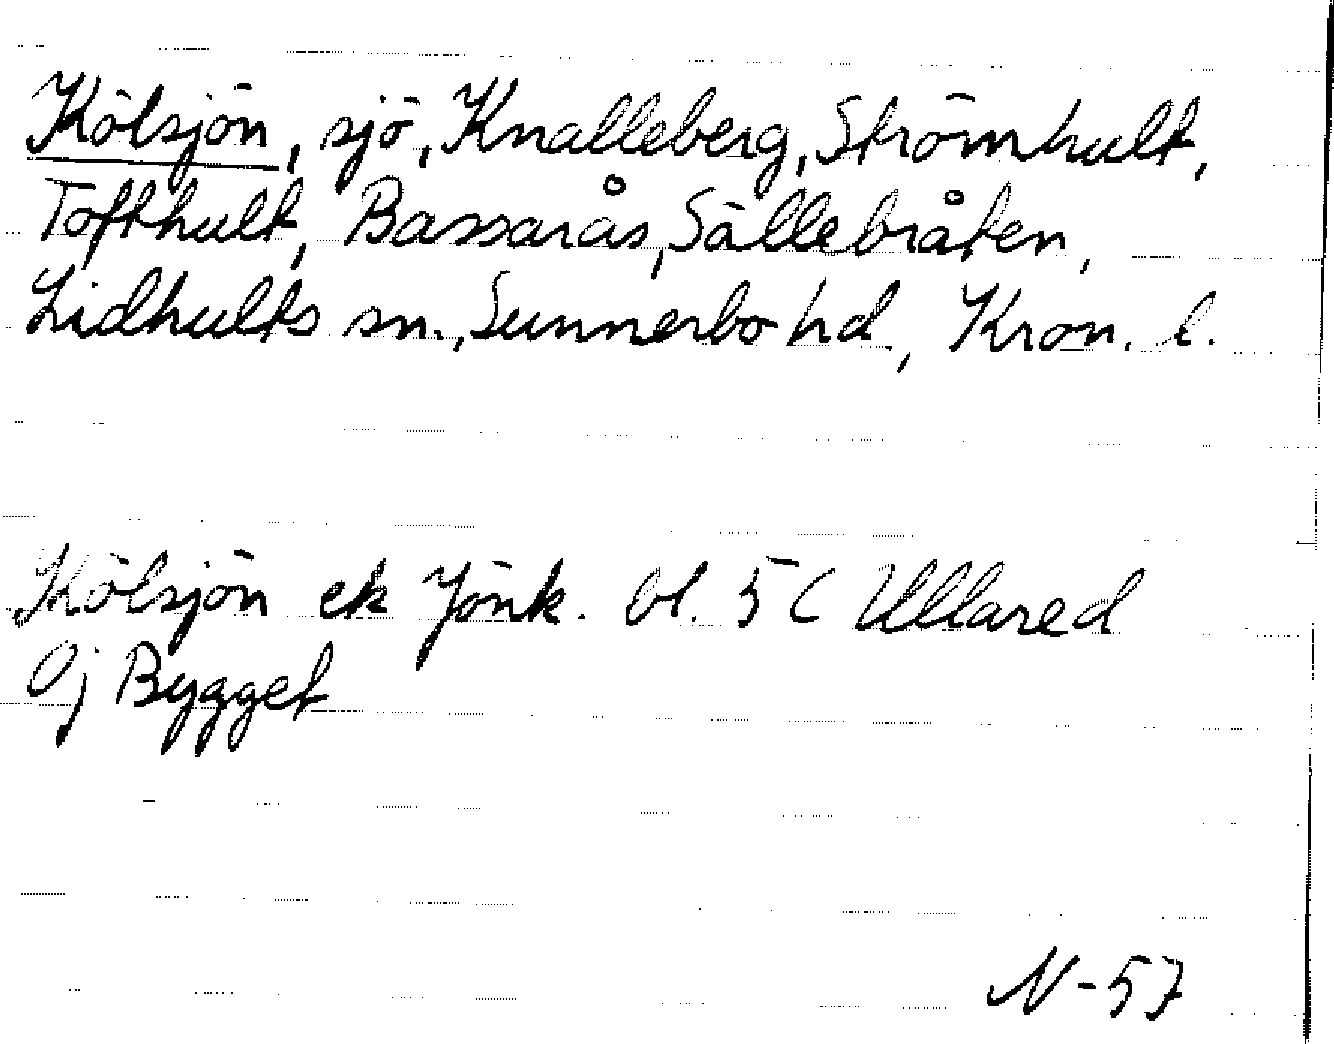 Kölsjön, sjö, Knalleberg, Strömhult,
Tofthult, Bassarås, Sällebråten,
Lidhults sn., Sunnerbo hd., Kron. l.
Kölsjön ek Jönk. bl. 5 C Ullared
0j Bygget
N-57